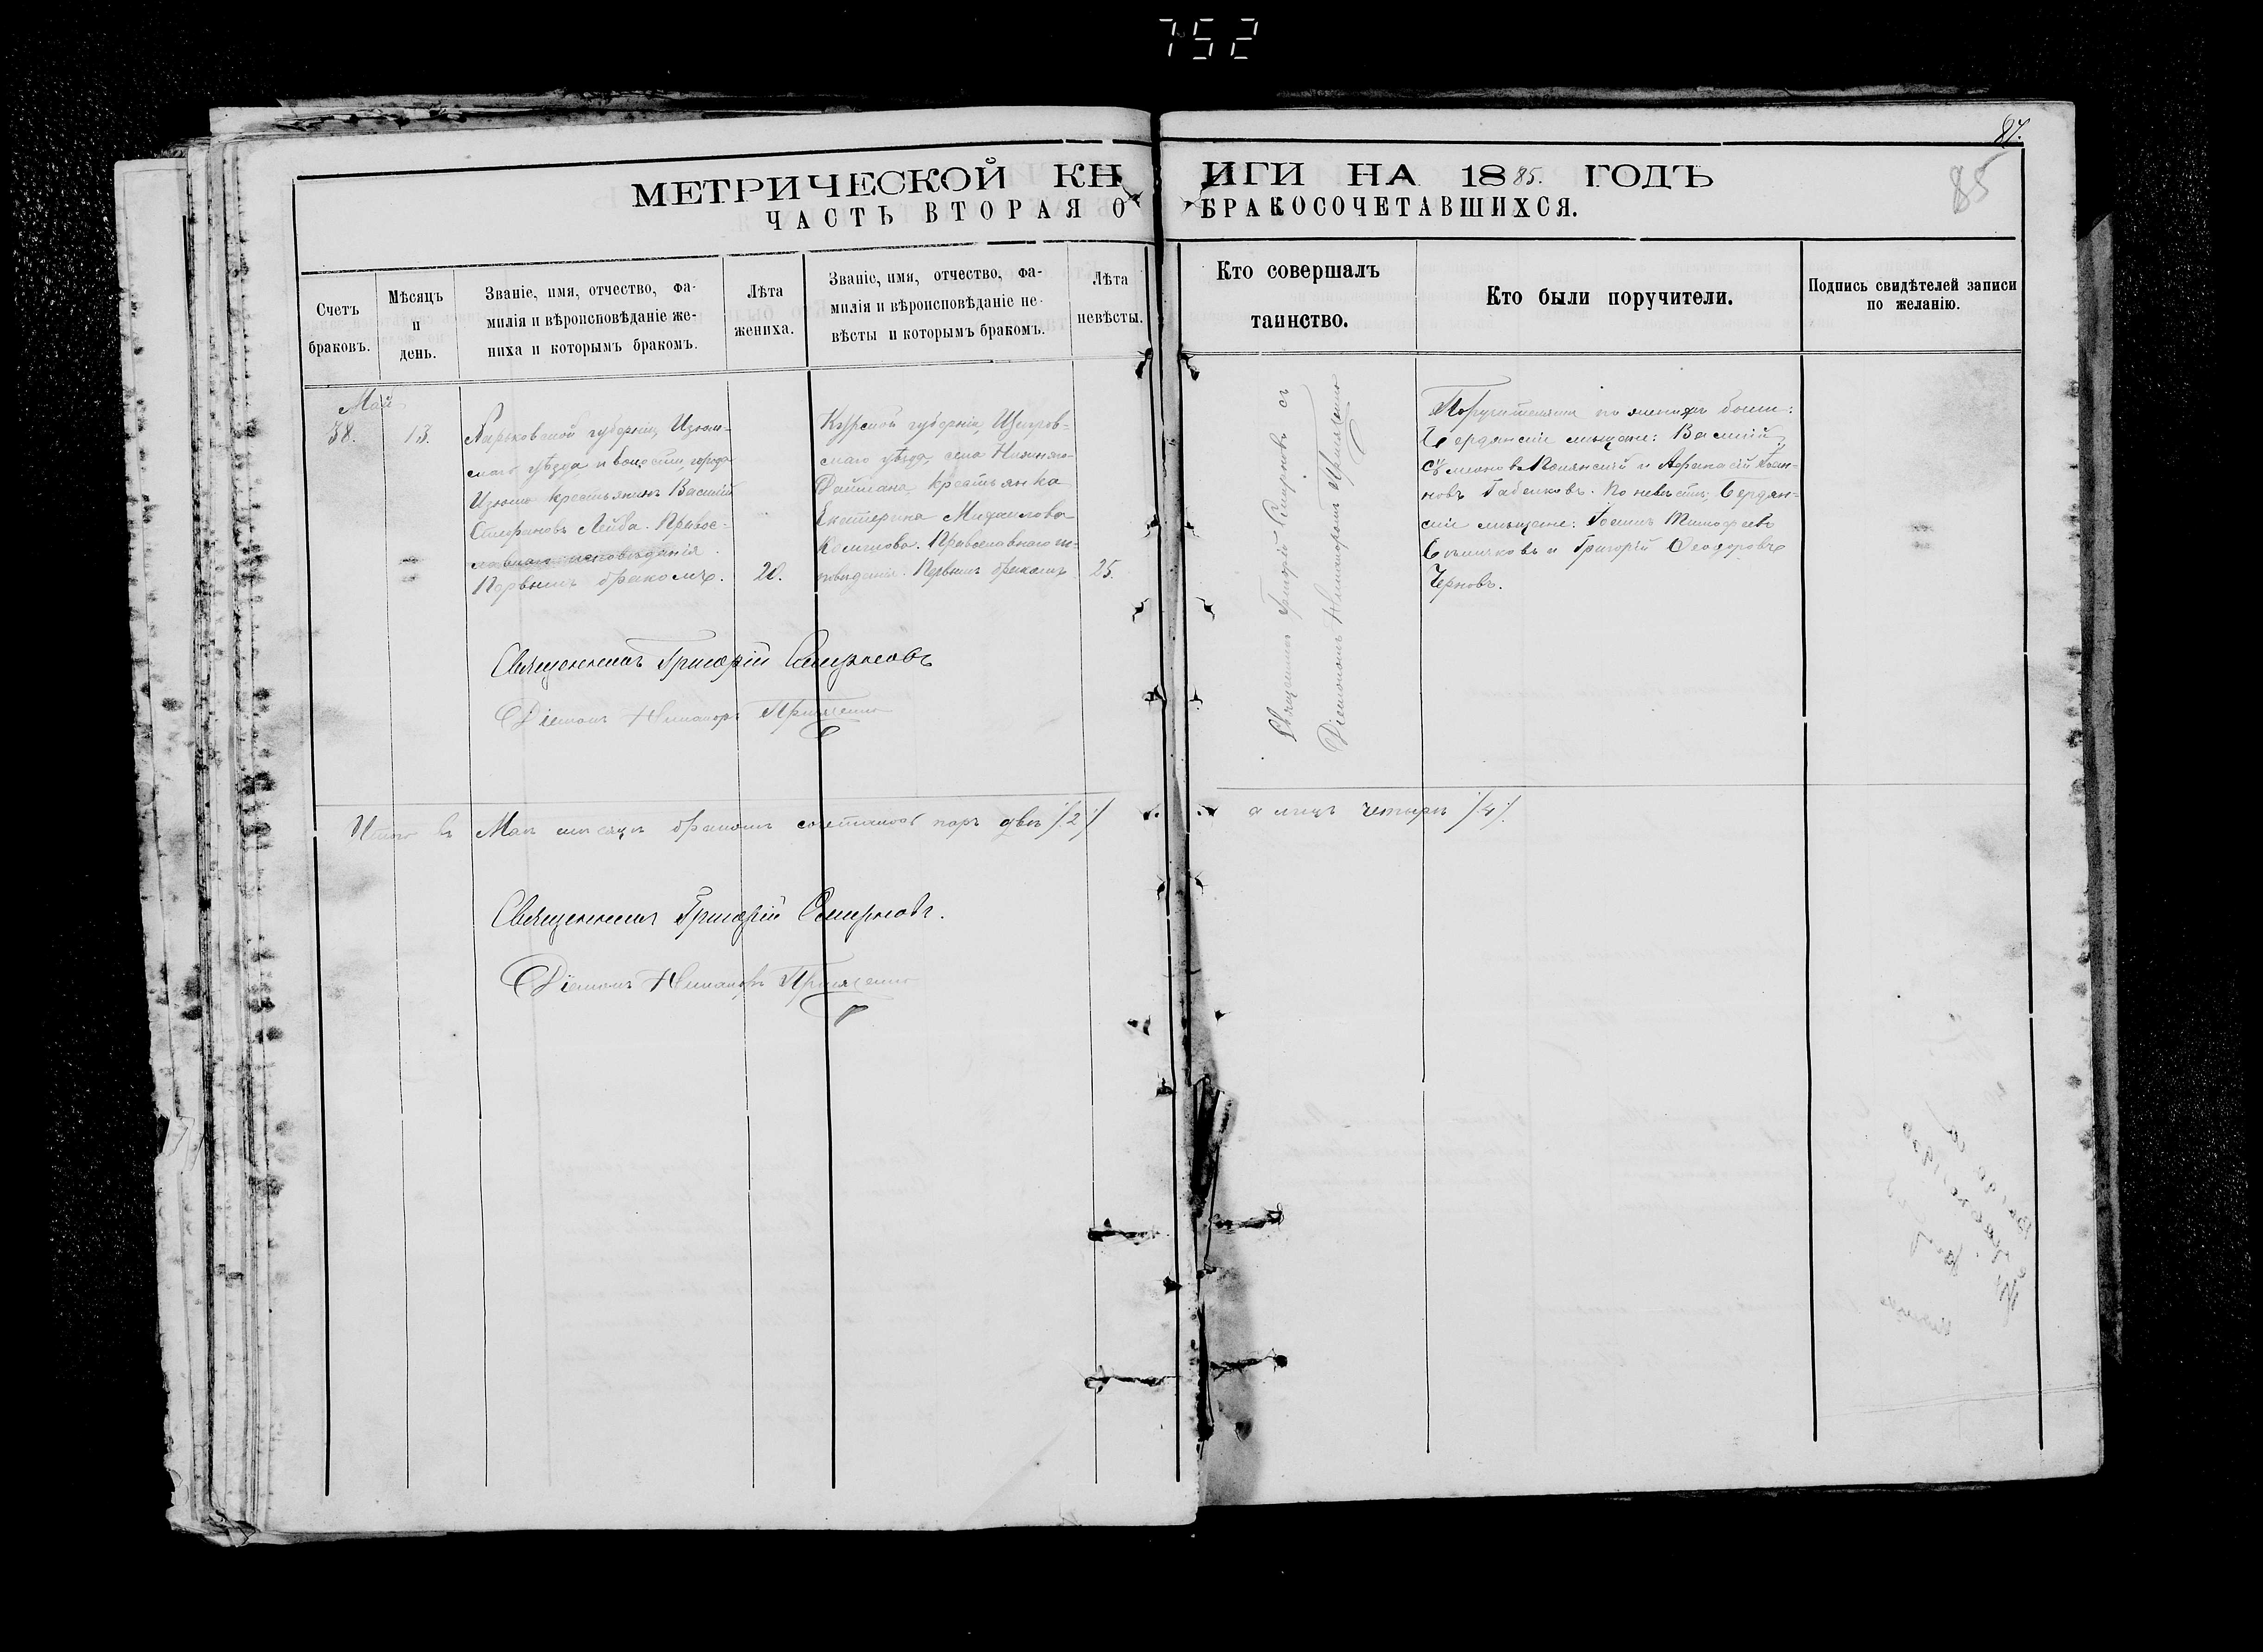 752
87.
85
МЕТРИЧЕСКОЙ КНИГИ НА 1885. ГОДЪ
ЧАСТЬ ВТОРАЯ О БРАКОСОЧЕТАВШИХСЯ.
Счетъ браковъ.
Мѣсяцъ и день.
Званіе, имя, отчество, фа-
милія и вѣроисповѣданіе же-
ниха и которымъ бракомъ.
Лѣта жениха.
Званіе, имя, отчество, фа-
милія и вѣроисповѣданіе не-
вѣсты и которымъ бракомъ.
Лѣта невѣсты.
Кто совершалъ
таинство.
Кто были поручители.
Подпись свидѣтелей записи
по желанію.
Май
38.
13.
Харьковской губерніи, Изюм-
скаго уѣзда и волости, города
Изюма крестьянинъ Василій
Стефановъ Лейба. Правос-
лавнаго исповѣданія.
Первымъ бракомъ.
20.
Курской губерніи, Щигров-
скаго уѣзда, села Нижняго-
крестьянка
Екатерина Михаилова
Православнаго ис-
повѣданія. Первымъ бракомъ
25.
Священникъ Григорій Смирновъ съ
Діакономъ Никаноромъ
Поручителями по женихѣ были:
Бердянскіе мѣщане: Василій
и Афанасій Іоан-
новъ Габелковъ. По невѣстѣ: Бердян-
скіе мѣщане: Іоаннъ Тимофеевъ
и Григорій Феодоровъ
Черновъ.
Священникъ Григорій Смирновъ
Діаконъ Никаноръ
Итого въ Маѣ мѣсяцѣ бракомъ сочетался паръ двѣ /2/ а лицъ четыре /4/.
Священникъ Григорій Смирновъ.
Діаконъ Никаноръ